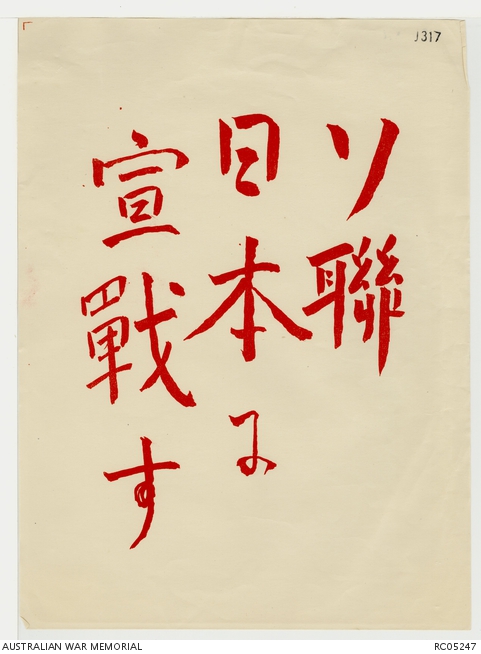 J317
ソ聯
日本に
宣戰す
AUSTRALIAN WAR MEMORIAL
RC05247